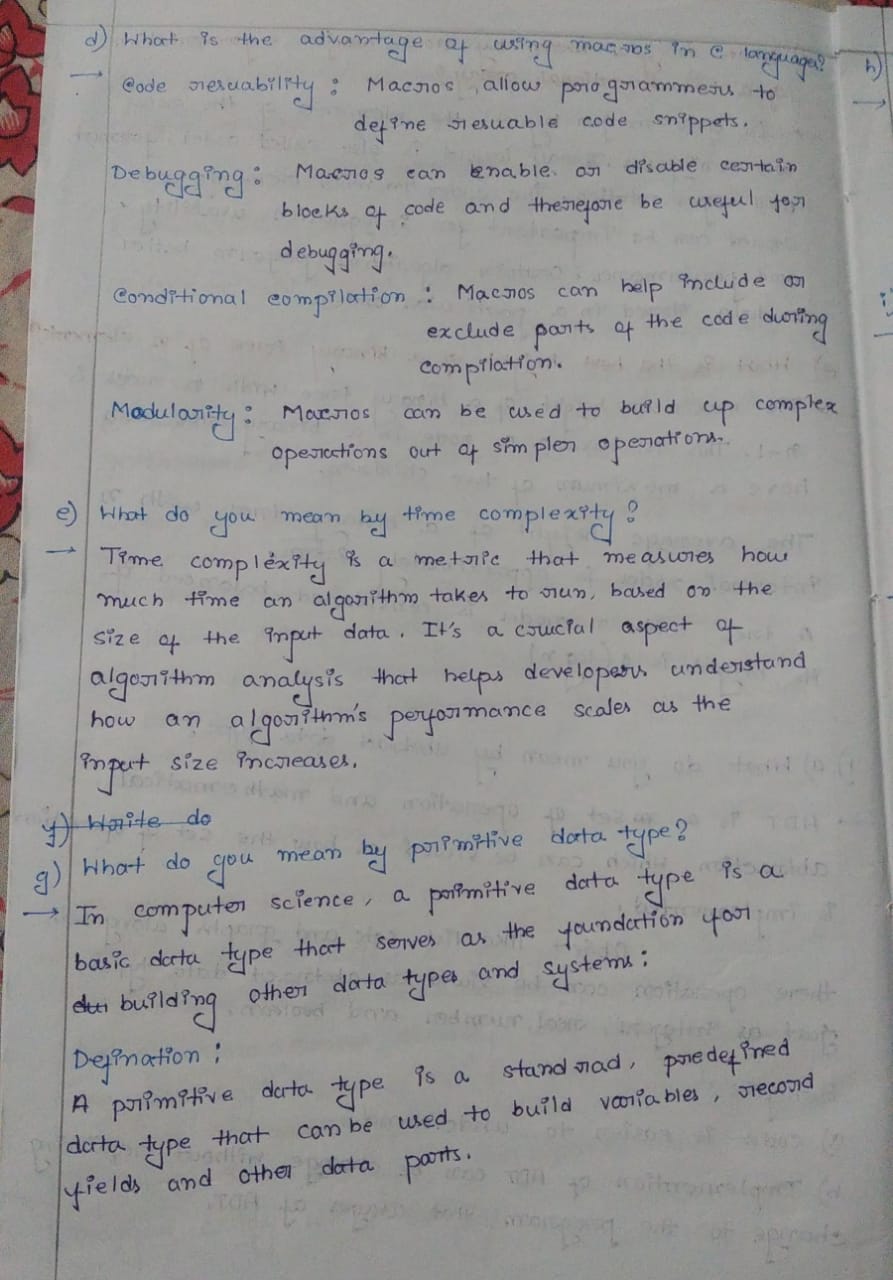 d) What is the advantage of using macros in C language?
→ Code resuability : Macros allow programmers to
define resuable code snippets.
Debugging : Macros can enable or disable certain
blocks of code and therefore be useful for
debugging.
Conditional compilation : Macros can help include or
exclude parts of the code during
compilation.
Modularity : Macros can be used to build up complex
operations out of simpler operations.
e) What do you mean by time complexity ?
→ Time complexity is a metric that measures how
much time an algorithm takes to run, based on the
size of the input data. It's a crucial aspect of
algorithm analysis that helps developers understand
how an algorithm's performance scales as the
input size increases.
f) Write do
g) What do you mean by primitive data type?
→ In computer science, a primitive data type is a
basic data type that serves as the foundation for
building other data types and systems :
Defination :
A primitive data type is a standrad, predefined
data type that can be used to build variables, record
fields and other data parts.
h)
→
i)